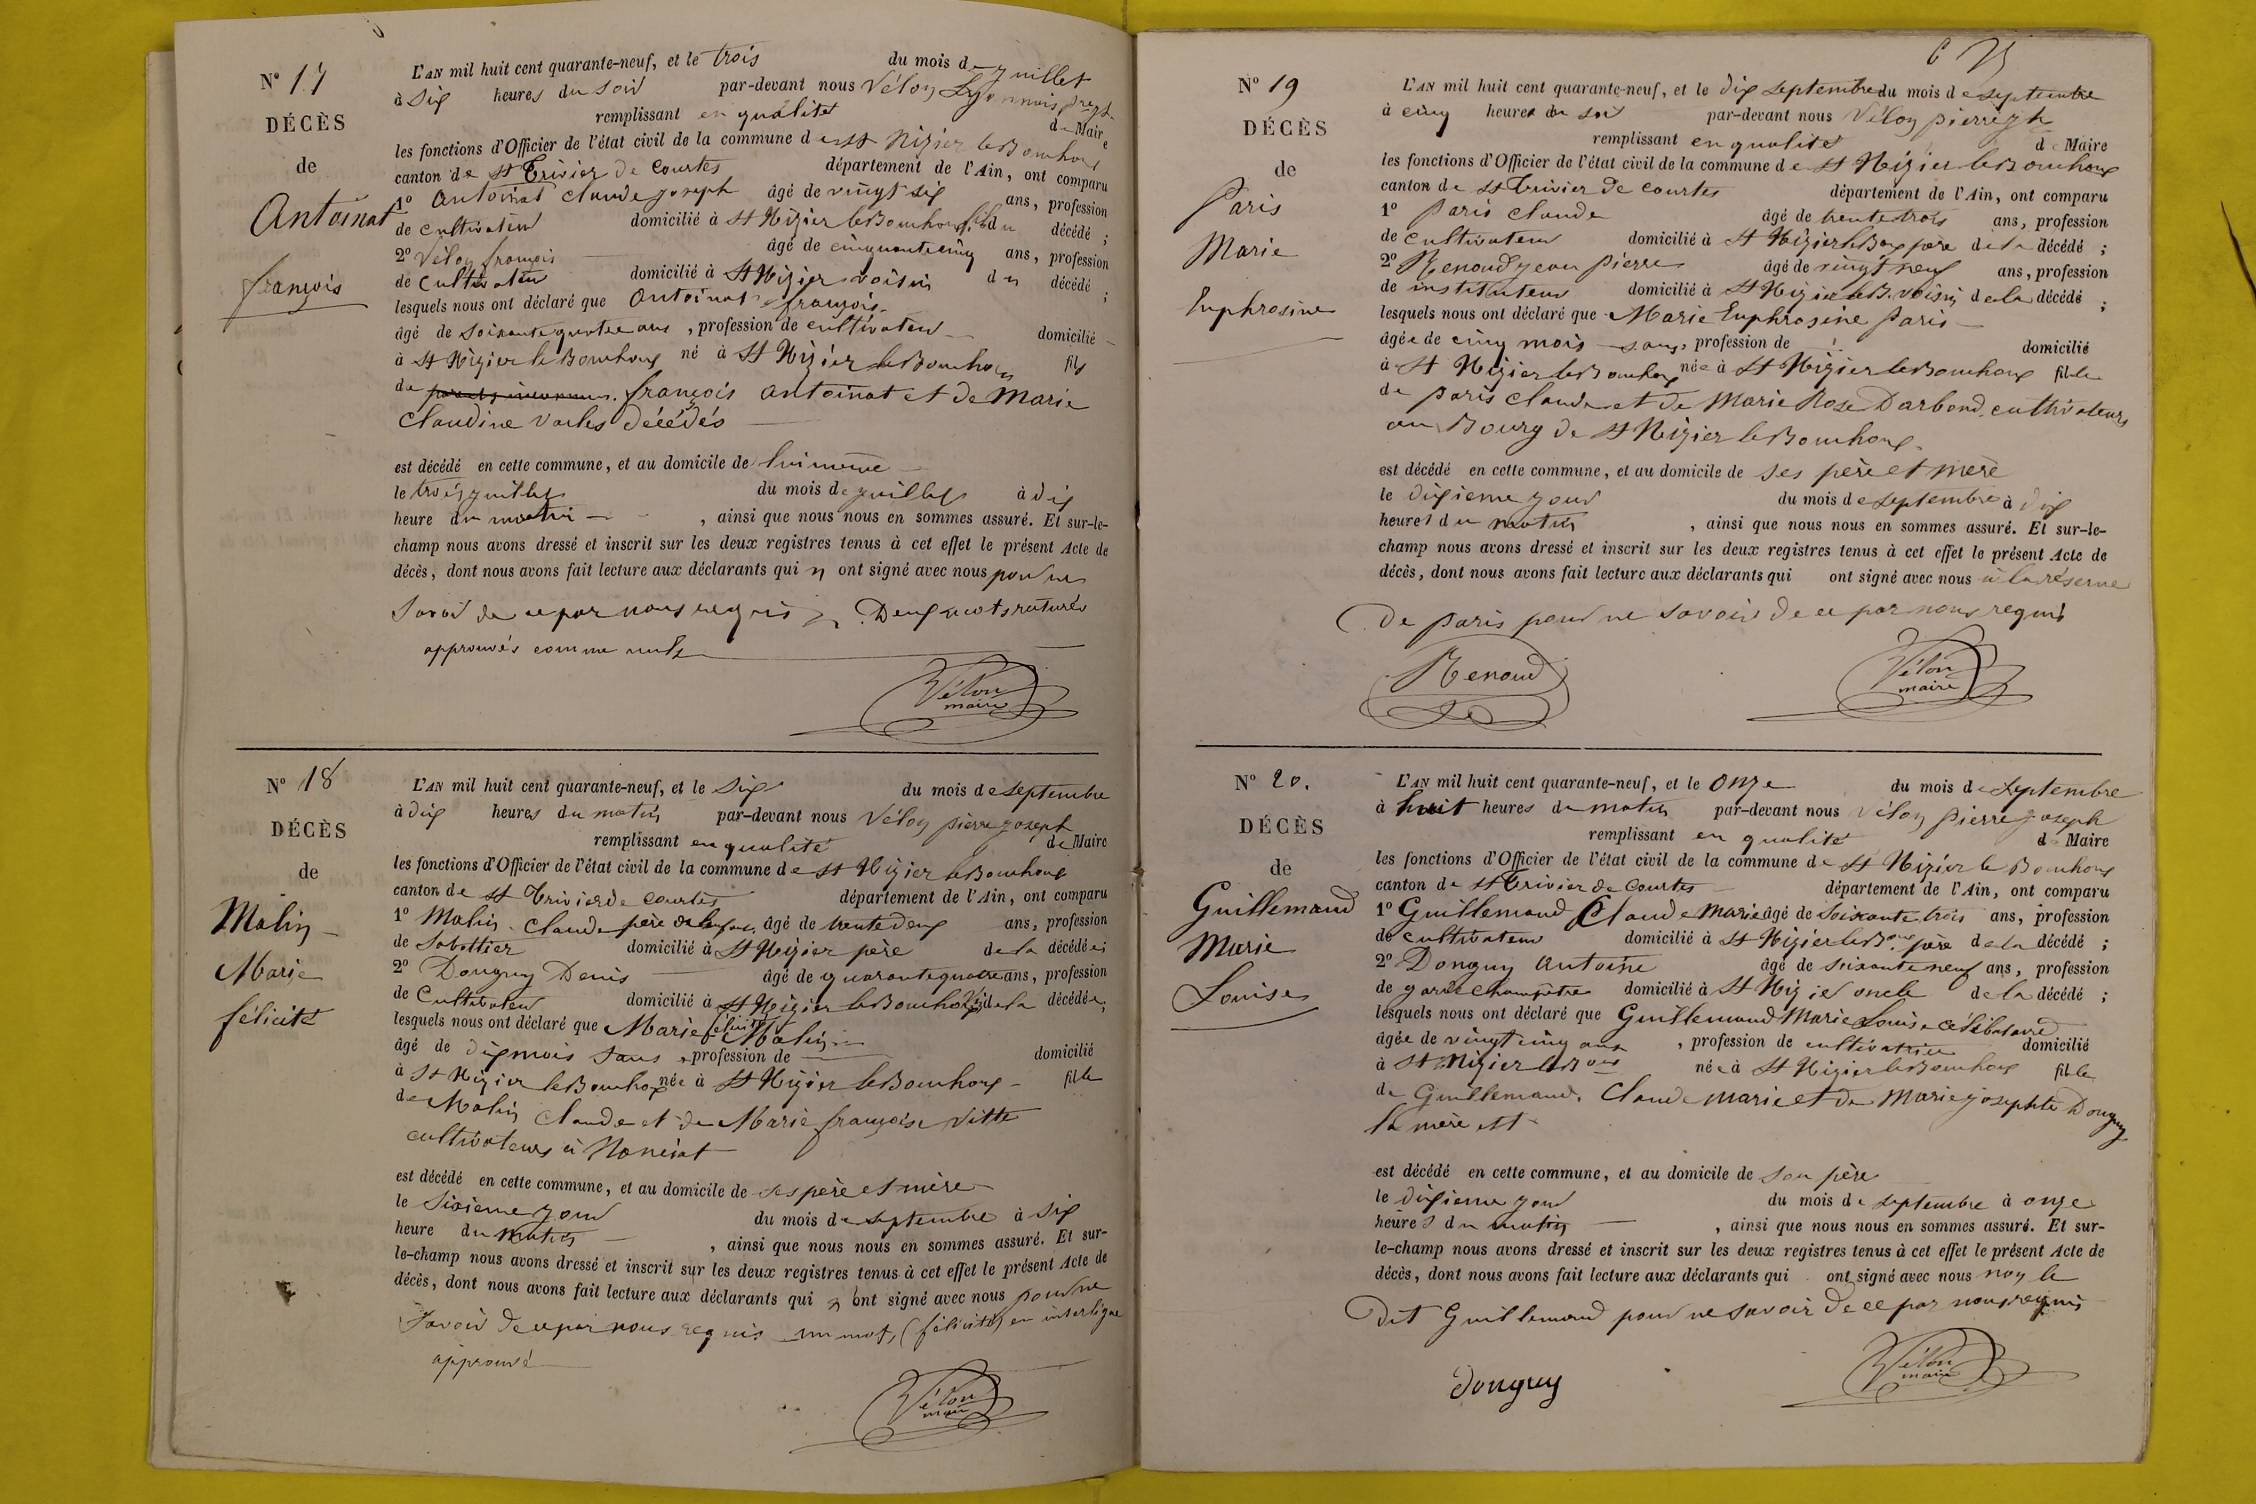 N° 17
DÉCÈS
de
Antoinat
françois
L'AN mil huit cent quarante-neuf, et le trois du mois de juillet
à six heures du soir par-devant nous Vélon
remplissant en qualité de Maire
les fonctions d'Officier de l'état civil de la commune de St Nizier le Bouchoux
canton de St Trivier de Courtes département de l'Ain, ont comparu
1° Antoinat Claude joseph âgé de vingt six ans, profession
de cultivateur domicilié à St Nizier le Bouchoux fils du décédé ;
2° Vélon françois âgé de cinquante cinq ans, profession
de cultivateur domicilié à St Nizier voisin du décédé ;
lesquels nous ont déclaré que Antoinat françois
âgé de soixante quatre ans, profession de cultivateur domicilié
à St Nizier le Bouchoux né à St Nizier le Bouchoux fils
de françois Antoinat et de Marie
Claudine décédés
est décédé en cette commune, et au domicile de lui même
le trois juillet du mois de juillet à dix
heure du matin, ainsi que nous nous en sommes assuré. Et sur-le-
champ nous avons dressé et inscrit sur les deux registres tenus à cet effet le présent Acte de
décès, dont nous avons fait lecture aux déclarants qui n ont signé avec nous pour ne
savoir de ce par nous requis. Deux mots raturés
approuvés comme nuls
Vélon
maire
N° 18
DÉCÈS
de
Malin
Marie
félicité
L'AN mil huit cent quarante-neuf, et le six du mois de septembre
à dix heures du matin par-devant nous Vélon pierre joseph
remplissant en qualité de Maire
les fonctions d'Officier de l'état civil de la commune de St Nizier le Bouchoux
canton de St Trivier de Courtes département de l'Ain, ont comparu
1° Malin Claude père de âgé de trente deux ans, profession
de Sabottier domicilié à St Nizier père de la décédée ;
2° Donguy Denis âgé de quarante quatre ans, profession
de Cultivateur domicilié à St Nizier le Bouchoux de la décédée ;
lesquels nous ont déclaré que Marie félicité Malin
âgé de dix mois sans, profession de domicilié
à St Nizier le Bouchoux née à St Nizier le Bouchoux fille
de Malin Claude et de Marie françoise Vitte
cultivateurs à
est décédé en cette commune, et au domicile de ses père et mère
le sixieme jour du mois de septembre à six
heure du matin, ainsi que nous nous en sommes assuré. Et sur-
le-champ nous avons dressé et inscrit sur les deux registres tenus à cet effet le présent Acte de
décès, dont nous avons fait lecture aux déclarants qui n ont signé avec nous pour ne
savoir de ce par nous requis un mot, (félicité) en interligne
approuvé
Vélon
maire
N° 19
DÉCÈS
de
Paris
Marie
Euphrosine
L'AN mil huit cent quarante-neuf, et le dix septembre du mois de septembre
à cinq heures du soir par-devant nous Vélon pierre jh
remplissant en qualité de Maire
les fonctions d'Officier de l'état civil de la commune de St Nizier le Bouchoux
canton de St Trivier de Courtes département de l'Ain, ont comparu
1° Paris Claude âgé de trente trois ans, profession
de cultivateur domicilié à St Nizier le Boux père de la décédé ;
2° Renoud jean pierre âgé de vingt neuf ans, profession
de instituteur domicilié à St Nizier le B. voisin de la décédé ;
lesquels nous ont déclaré que Marie Euphrosine Paris
âgée de cinq mois sans, profession de domicilié
à St Nizier le Bouchoux née à St Nizier le Bouchoux fille
de Paris Claude et de Marie Rose Darbond cultivateurs
au Bourg de St Nizier le Bouchoux
est décédé en cette commune, et au domicile de ses père et mère
le dixieme jour du mois de septembre à dix
heures du matin, ainsi que nous nous en sommes assuré. Et sur-le-
champ nous avons dressé et inscrit sur les deux registres tenus à cet effet le présent Acte de
décès, dont nous avons fait lecture aux déclarants qui ont signé avec nous à la réserve
de Paris pour ne savoir de ce par nous requis
Renoud
Vélon
maire
N° 20.
DÉCÈS
de
Guillemaud
Marie
Louise
L'AN mil huit cent quarante-neuf, et le onze du mois de septembre
à huit heures du matin par-devant nous Vélon pierre joseph
remplissant en qualité de Maire
les fonctions d'Officier de l'état civil de la commune de St Nizier le Bouchoux
canton de St Trivier de Courtes département de l'Ain, ont comparu
1° Guillemaud Claude Marie âgé de soixante trois ans, profession
de cultivateur domicilié à St Nizier le Boux père de la décédé ;
2° Donguy Antoine âgé de soixante neuf ans, profession
de garde champêtre domicilié à St Nizier oncle de la décédé ;
lesquels nous ont déclaré que Guillemaud Marie Louise célibataire
âgée de vingt cinq ans, profession de cultivatrice domicilié
à St Nizier le Boux née à St Nizier le Bouchoux fille
de Guillemaud Claude Marie et de Marie josephte Donguy
la mère est
est décédé en cette commune, et au domicile de son père
le dixieme jour du mois de septembre à onze
heures du matin, ainsi que nous nous en sommes assuré. Et sur-
le-champ nous avons dressé et inscrit sur les deux registres tenus à cet effet le présent Acte de
décès, dont nous avons fait lecture aux déclarants qui ont signé avec nous non le
dit Guillemaud pour ne savoir de ce par nous requis
donguy
Vélon
maire